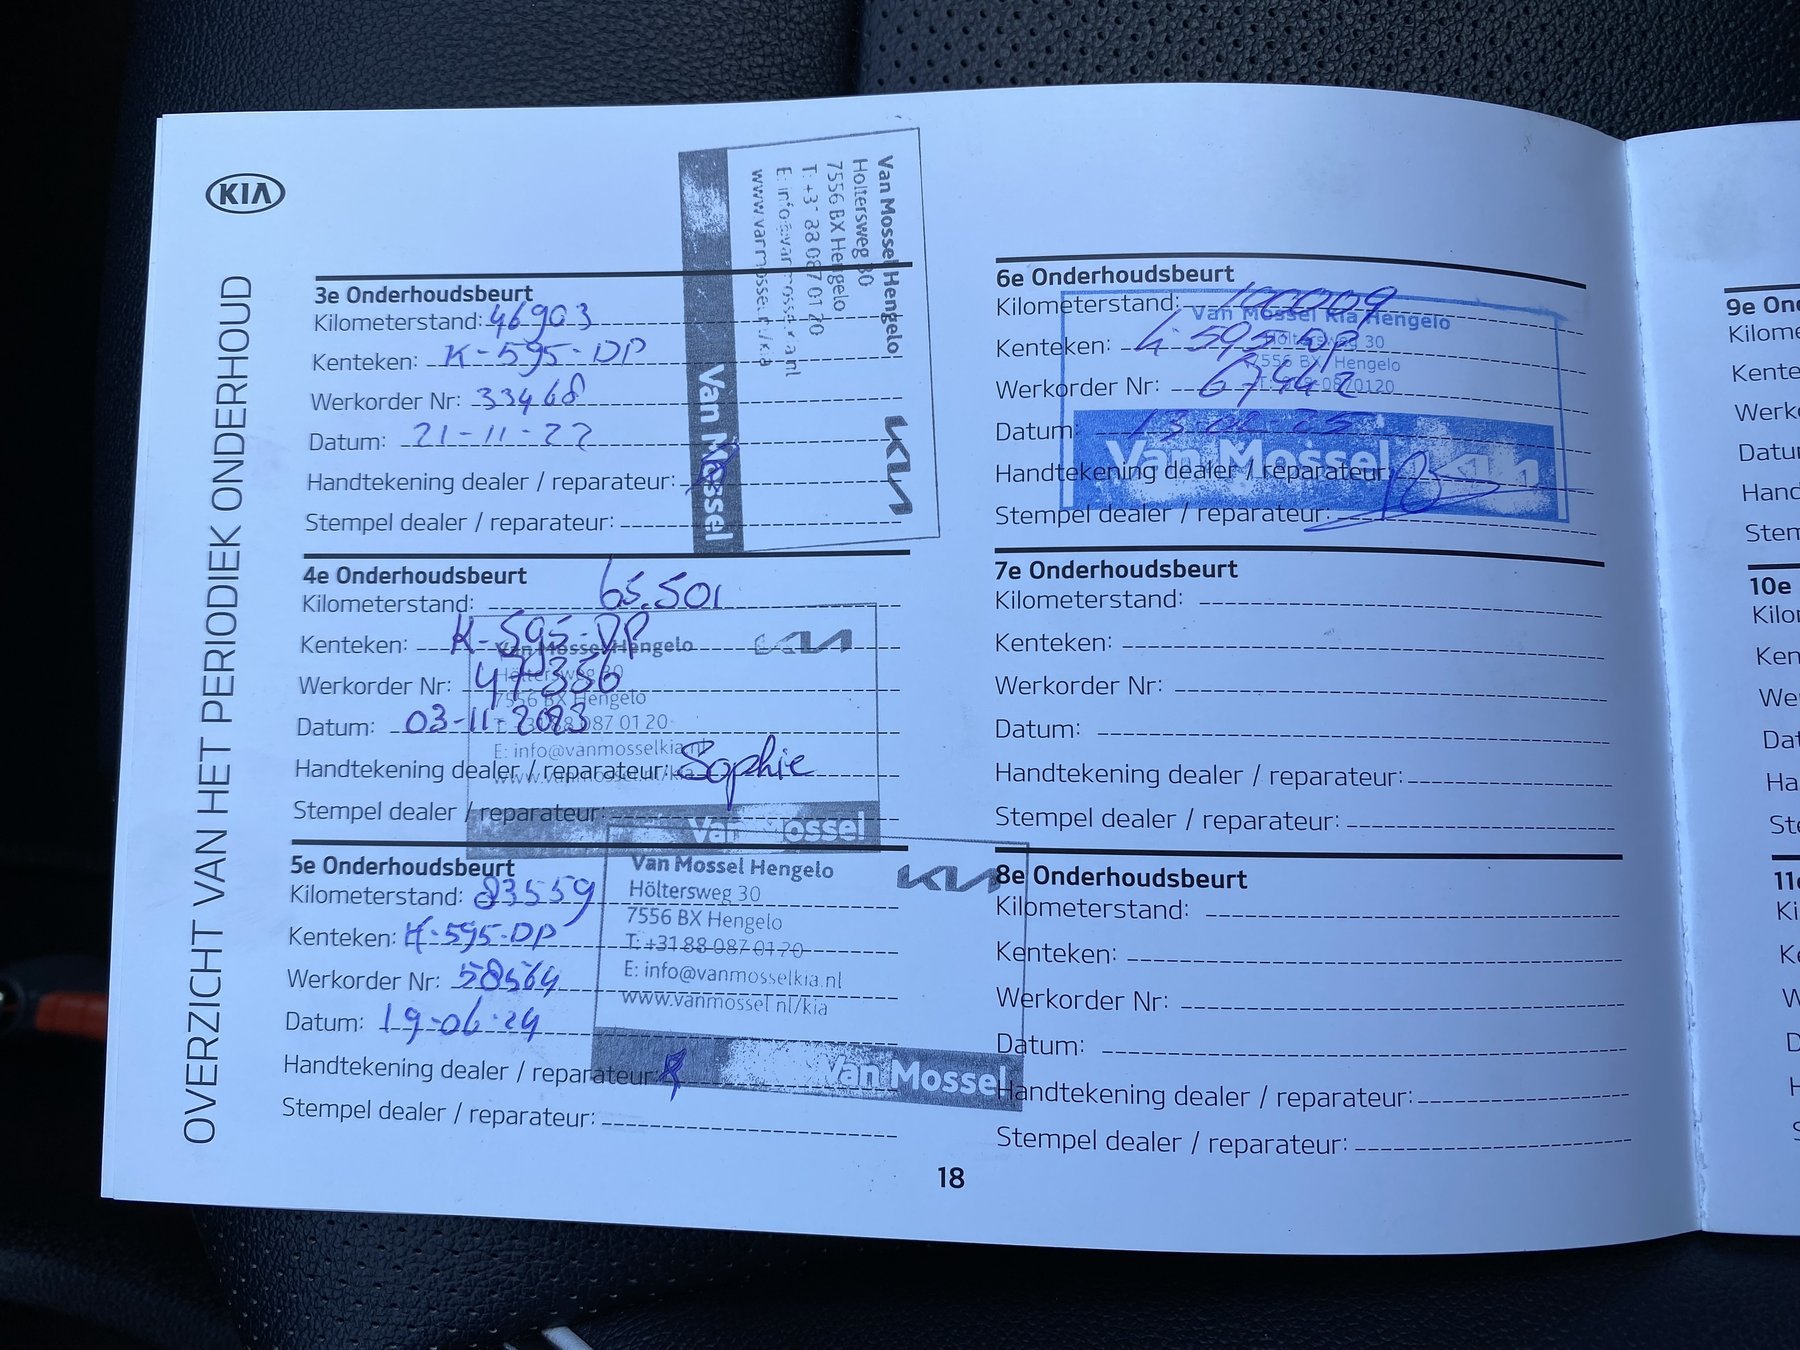 KIA
OVERZICHT VAN HET PERIODIEK ONDERHOUD
Van Mossel Hengelo
Höltersweg 30
7556 BX Hengelo
T: +31 88 087 01 20
E: info@vanmosselkia.nl
www.vanmossel.nl/kia
KIA
Van Mossel
3e Onderhoudsbeurt
Kilometerstand: 46903
Kenteken: K-595-DP
Werkorder Nr: 33468
Datum: 21-11-22
Handtekening dealer / reparateur:
Stempel dealer / reparateur:
4e Onderhoudsbeurt
Kilometerstand: 65.501
Kenteken: K-595-DP
Werkorder Nr: 47356
Datum: 03-11-2023
Handtekening dealer / reparateur: Sophie
Stempel dealer / reparateur:
Van Mossel Hengelo
KIA
Höltersweg 30
7556 BX Hengelo
T: +31 88 087 01 20
E: info@vanmosselkia.nl
www.vanmossel.nl/kia
Van Mossel
5e Onderhoudsbeurt
Kilometerstand: 83559
Kenteken: K-595-DP
Werkorder Nr: 58564
Datum: 19-06-24
Handtekening dealer / reparateur:
Stempel dealer / reparateur:
Van Mossel Hengelo
KIA
Höltersweg 30
7556 BX Hengelo
T: +31 88 087 01 20
E: info@vanmosselkia.nl
www.vanmossel.nl/kia
Van Mossel
6e Onderhoudsbeurt
Kilometerstand: 100009
Kenteken: K-595-DP
Werkorder Nr: 67442
Datum: 13-02-25
Handtekening dealer / reparateur:
Stempel dealer / reparateur:
Van Mossel Kia Hengelo
Höltersweg 30
7556 BX Hengelo
0870120
Van Mossel KIA
7e Onderhoudsbeurt
Kilometerstand:
Kenteken:
Werkorder Nr:
Datum:
Handtekening dealer / reparateur:
Stempel dealer / reparateur:
8e Onderhoudsbeurt
Kilometerstand:
Kenteken:
Werkorder Nr:
Datum:
Handtekening dealer / reparateur:
Stempel dealer / reparateur:
18
9e On
Kilome
Kente
Werk
Datu
Hand
Stem
10e
Kilo
Ken
We
Dat
Ha
Ste
11e
Ki
Ke
W
D
H
S